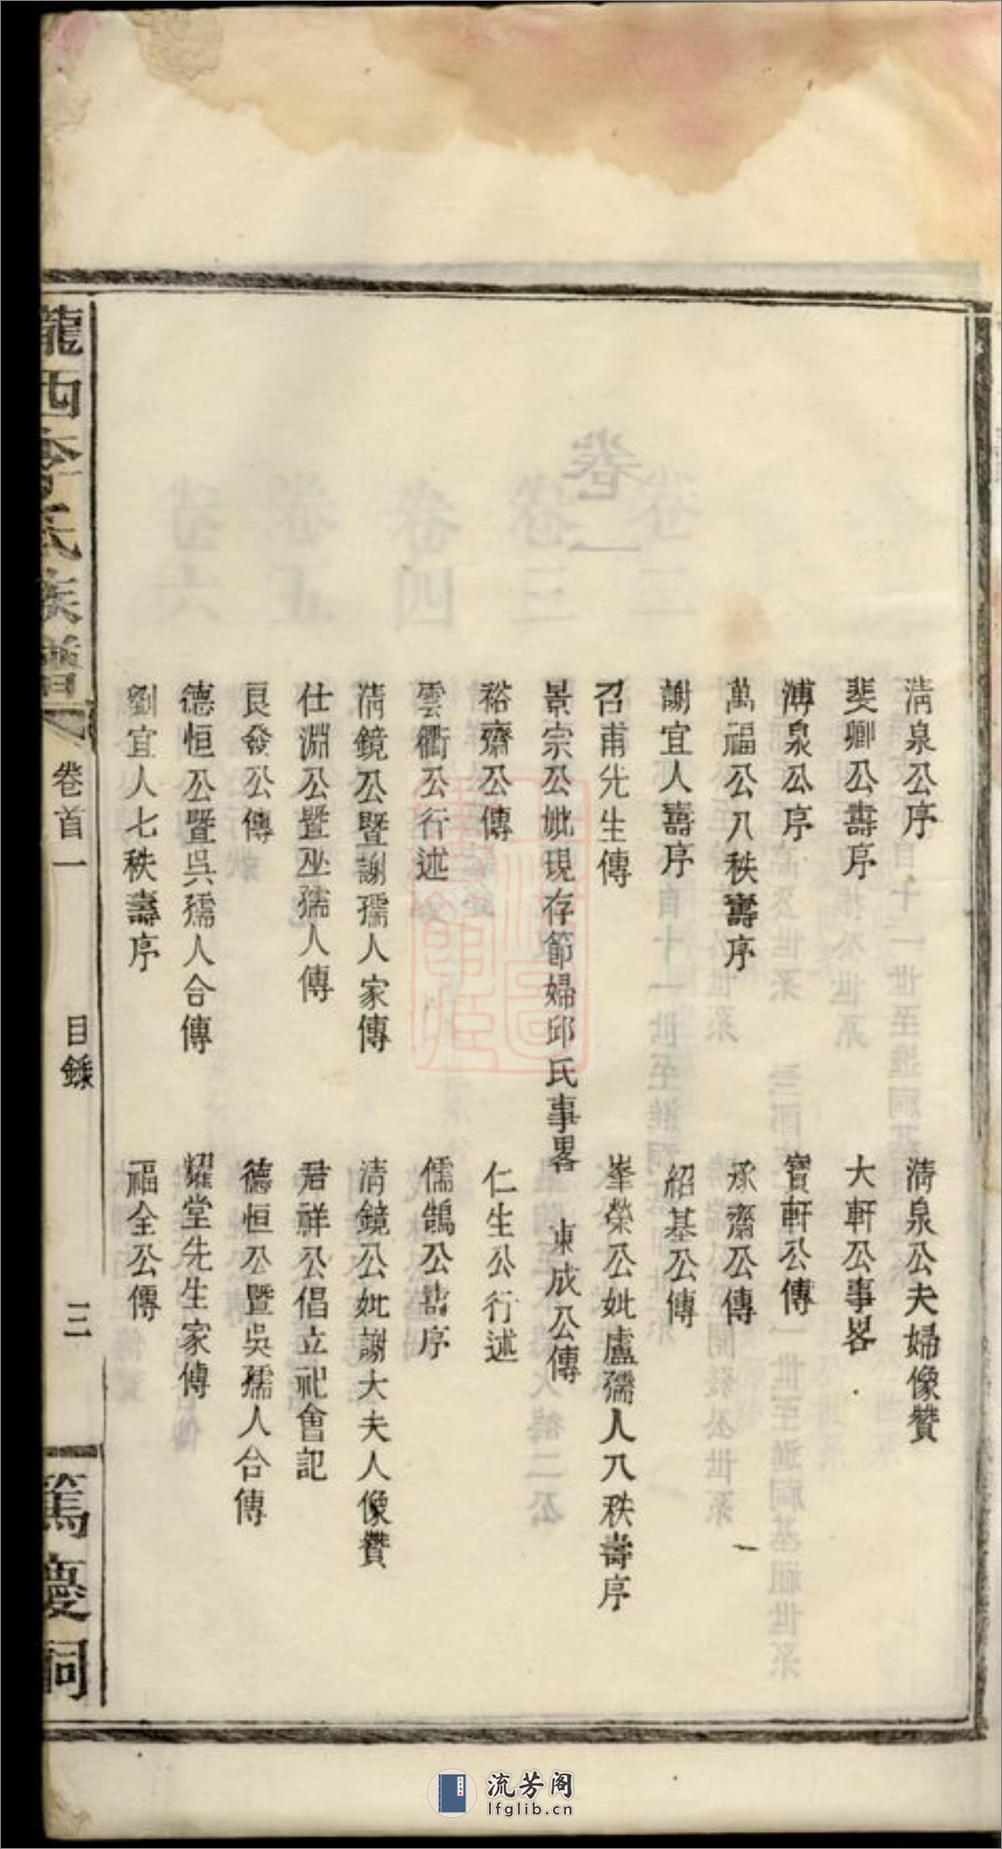 清泉公序 清泉公夫婦像贊
斐卿公壽序 大軒公事畧
溥泉公序 寶軒公傳
萬福公八秩壽序 承齋公傳
謝宜人壽序 紹基公傳
召甫先生傳 峯榮公妣盧孺人八秩壽序
景宗公妣現存節婦邱氏事畧 東成公傳
裕齋公傳 仁生公行述
雲衢公行述 儒鵠公壽序
清鏡公暨謝孺人家傳 清鏡公妣謝大夫人像贊
仕淵公暨巫孺人傳 君祥公倡立祀會記
良發公傳 德恒公暨吳孺人合傳
德恒公暨吳孺人合傳 耀堂先生家傳
劉宜人七秩壽序 福全公傳
隴西李氏族譜 卷首一 目錄 三 篤慶祠
卷一
卷二
卷三
卷四
卷五
卷六
流芳阁
lfglib.cn